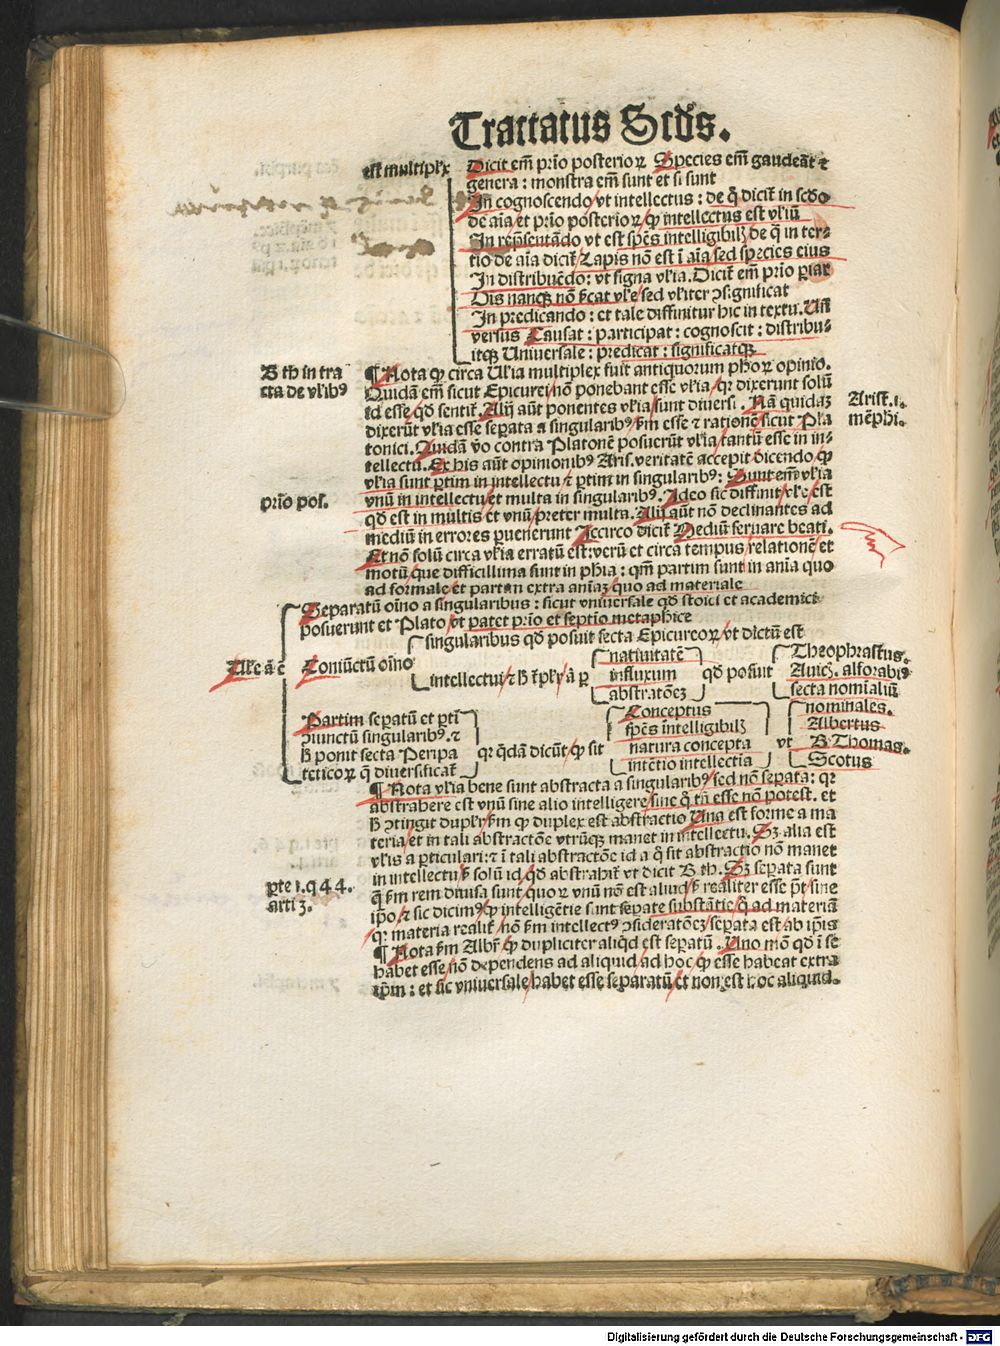 Tractatus Scďs.
est multiplx
Dicit em̄ prīo posterioꝝ Species em̄ gaudeāt ⁊
genera : monstra em̄ sunt et si sunt
In cognoscendo vt intellectus : de q̄ dicit̄ in scďo
de aīa et prīo posterioꝝ ꝙ intellectus est vl̄iū
In rep̄sentādo vt est sp̄es intelligibilꝫ de q̄ in ter⸗
tio de aīa dicit̄ Lapis nō est ī aīa sed species eius
In distribuēdo : vt signa vl̄ia. Dicit em̄ prīo ꝑiar
Ois nanqꝫ nō s̄cat vl̄e sed vl̄iter ↄsignificat
In predicando : et tale diffinitur hic in textu. Un̄
versus Causat : participat : cognoscit : distribu⸗
itqꝫ Universale : predicat : significatqꝫ
B th in tra
cta de vl̄ibꝰ
¶ Nota ꝙ circa Ul̄ia multiplex fuit antiquorum pḣoꝝ opinio.
Quidā em̄ sicut Epicurei nō ponebant esse vl̄ia qꝛ dixerunt solū
id esse qď sentit̄. Alij aūt ponentes vl̄ia sunt diuersi. Nā quidaꝫ
Arist̄. 1.
mēphi.
dixerūt vl̄ia esse seꝑata a singularibꝰ s̄m esse ⁊ rationē sicut Pla
tonici. Quidā v̄o contra Platonē posuerūt vl̄ia tantū esse in in⸗
tellectu. Ex his aūt opinionibꝰ Aris. veritatē accepit dicendo ꝙ
vl̄ia sunt ꝑtim in intellectu ⁊ ꝑtim in singularibꝰ : Sunt em̄ vl̄ia
prīo pos.
vnū in intellectu et multa in singularibꝰ. Ideo sic diffinit vl̄e est
qď est in multis et vnū preter multa. Alij aūt nō declinantes ad
mediū in errores ꝑuenerunt Iccirco dicit̄ Mediū seruare beati.
Et nō solū circa vl̄ia erratū est : verū et circa tempus relationē et
motū que difficillima sunt in pḣia : qm̄ partim sunt in aīa quo
ad formale et partim extra animā quo ad materiale
Separatū oīno a singularibus : sicut vniuersale qď stoici et academici
posuerunt et Plato vt patet prīo et septīo metaphice
singularibus qď posuit secta Epicureoꝝ vt dictū est
Ul̄e aū ē
Coniūctū oīno
intellectui ⁊ ꝑ
natiuitatē
influxum
abstratōeꝫ
qď posuit
Theophrastus.
Auiċ. alforabiꝰ
secta nominaliū
Partim seꝑatū et ꝑti
ↄiunctū singularibꝰ. ⁊
ponit secta Peripa
teticoꝝ q̄ diuersificat̄
qꝛ qdā dicūt ꝙ sit
Conceptus
sp̄es intelligibilꝫ
natura concepta
intētio intellectia
vt
nominales.
Albertus
B Thomas.
Scotus
¶ Nota vl̄ia bene sunt abstracta a singularibꝰ sed nō seꝑata : qꝛ
abstrahere est vnū sine alio intelligere sine q̄ tn̄ esse nō potest. et
ↄtingit dupl̄r s̄m ꝙ duplex est abstractio Una est forme a ma
teria et in tali abstractōe vtrūqꝫ manet in intellectu. Sꝫ alia est
vl̄is a ꝑticulari : ⁊ ī tali abstractōe id a q̄ fit abstractio nō manet
in intellectu s̄ solū id qď abstrahit̄ vt dicit B. th. Sꝫ seꝑata sunt
pte 1. q 44.
arti 3.
q̄ s̄m rem diuisa sunt quoꝝ vnū nō est aliud s̄ realiter esse pōt sine
ip̄o ⁊ sic dicimꝰ ꝙ intelligētie sunt seꝑate substātie q̄ ad materiā
qꝛ materia realit̄ nō s̄m intellectꝰ ↄsideratōeꝫ seꝑata est ab ip̄is
¶ Nota s̄m Alb̄r ꝙ dupliciter aliqď est seꝑatū. Uno mō qď ī se
habet esse nō dependens ad aliquid ad hoc ꝙ esse habeat extra
ip̄m : et sic vniuersale habet esse seꝑatū et non est hoc aliquid.
Digitalisierung gefördert durch die Deutsche Forschungsgemeinschaft - DFG